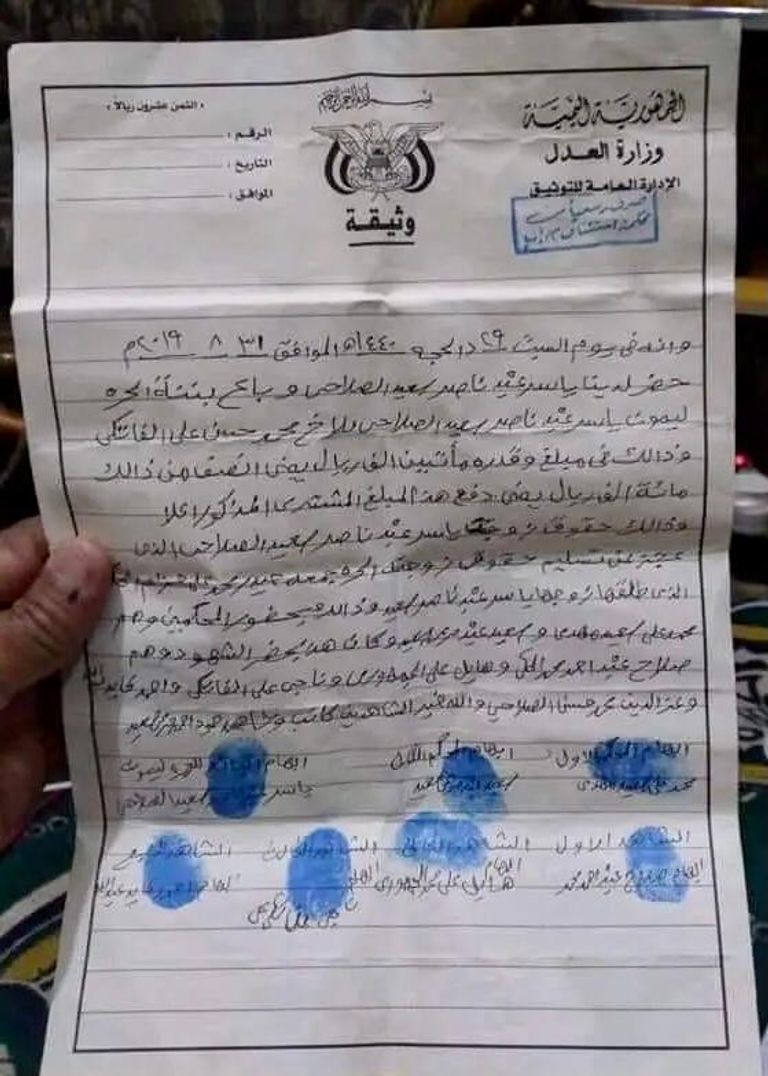 بسم الله الرحمن الرحيم
الجمهورية اليمنية
وزارة العدل
الإدارة العامة للتوثيق
« الثمن عشرون ريالاً »
الرقم :
التاريخ :
الموافق :
وثيقة
وانه في يوم السبت ٢٩ ذالحجه ١٤٤٠ه الموافق ٣١ ٨ ٢٠١٩م
حضر لدينا ياسر عبد ناصر سعيد الصلاحي وباع بنتة الحره
ليموت ياسر عبد ناصر سعيد الصلاحي للاخ محمد حسن علي الفاتكي
وذالك في مبلغ وقدره مأتيين الف ريال يمني النصف من ذالك
مائة الف ريال يمني دفع هذ المبلغ المشتري المذكور اعلا
وذالك حقوق زوجة ياسر عبد ناصر سعيد الصلاحي الذي
عجز عن تسليم حقوق زوجتة الحره جمعه
الذي طلقها زوجها ياسر عبد ناصر سعيد وذالك بحضور المحكمين وهم
محمد علي سعيد مهدي و سعيد وكان هذ بحضر الشهود وهم
صلاح عبد احمد محمد وهايل علي وناجي علي الفاتكي واحمد قايد
وعز الدين محمد حسن الصلاحي والله خير الشاهدين كاتب وشاهد
ابهام المحكم الاول
ابهام المحكم الثاني
ابهام
محمد علي سعيد مهدي
ياسر عبد سعيد الصلاحي
الشاهد الاول
الشاهد الثاني
الشاهد الثالث
الشاهد
صلاح عبد احمد محمد